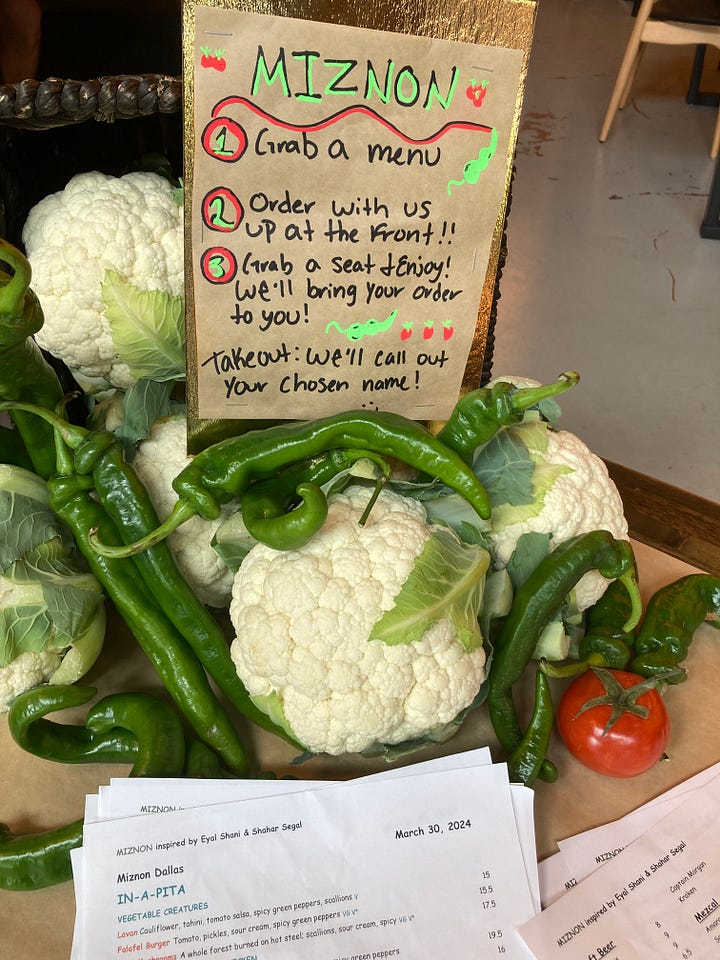 MIZNON
1 Grab a menu
2 Order with us
up at the front!!
3 Grab a seat & Enjoy!
We'll bring your order
to you!
Takeout: We'll call out
your chosen name!
MIZNON
MIZNON inspired by Eyal Shani & Shahar Segal
March 30, 2024
Miznon Dallas
IN-A-PITA
VEGETABLE CREATURES
15
Lavan Cauliflower, tahini, tomato salsa, spicy green peppers, scallions V
15.5
Falafel Burger Tomato, pickles, sour cream, spicy green peppers VG V*
17.5
Mushrooms A whole forest burned on hot steel; scallions, sour cream, spicy VG V*
19.5
green peppers
16
MIZNON
MIZNON
MIZNON inspired by Eyal Shani & Shahar Segal
Captain Morgan
Kraken
Beer
8
9
9
6.5
Mezcal